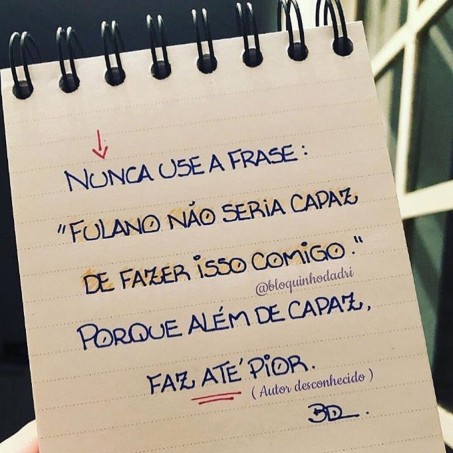 NUNCA USE A FRASE:
"FULANO NÃO SERIA CAPAZ
DE FAZER ISSO COMIGO."
@bloquinhodadri
PORQUE ALÉM DE CAPAZ,
FAZ ATÉ PIOR.
( Autor desconhecido )
BD.